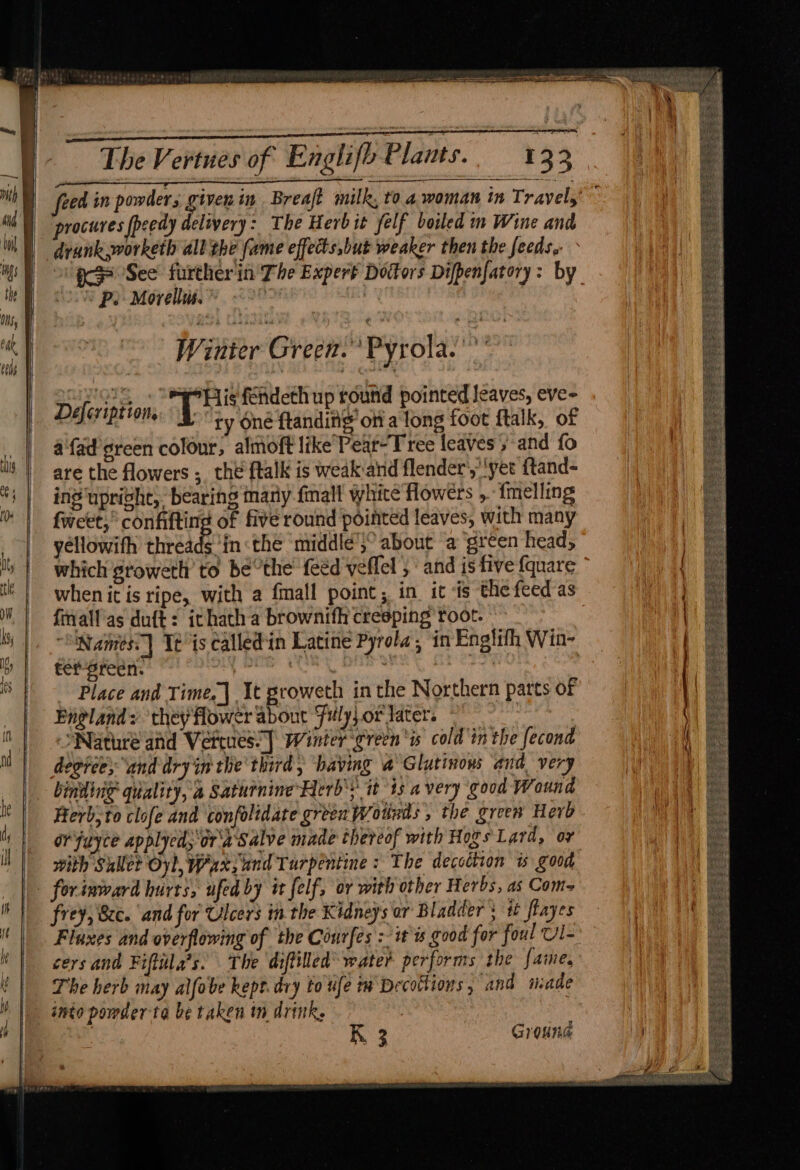 The Vertues of Engliſh Plants. 133
ſeed in powders given in Breaſt milk, to a woman in Travel,
procures ſpeedy delivery: The Herb it ſelf boiled in Wine and
drunk, worketh all the ſame effects, but weaker then the ſeeds.
☞ See further in The Expert Doctors Diſpenſatory: by
P. Morellus.
Winter Green. Pyrola.
Deſcription. THis ſendeth up round pointed leaves, eve-
ry one ſtanding on a long foot ſtalk, of
a ſad green colour, almoſt like Pear-Tree leaves, and ſo
are the flowers; the ſtalk is weak and ſlender, yet ſtand-
ing upright, bearing many ſmall white flowers, ſmelling
ſweet, conſiſting of five round pointed leaves, with many
yellowiſh threads in the middle, about a green head,
which groweth to be the ſeed veſſel, and is five ſquare
when it is ripe, with a ſmall point, in it is the ſeed as
ſmall as duſt: it hath a browniſh creeping root.
Names.] It is called in Latine Pyrola, in Engliſh Win-
ter green.
Place and Time.] It groweth in the Northern parts of
England: they flower about July, or later.
Nature and Vertues.] Winter green is cold in the ſecond
degree, and dry in the third, having a Glutinous and very
binding quality, a Saturnine Herb; it is a very good Wound
Herb, to cloſe and conſolidate green Wounds, the green Herb
or juyce applyed, or a Salve made thereof with Hogs Lard, or
with Sallet Oyl, Wax, and Turpentine: The decoction is good
for inward hurts, uſed by it ſelf, or with other Herbs, as Com-
frey, &c. and for Ulcers in the Kidneys or Bladder; it ſtayes
Fluxes and overflowing of the Courſes: it is good for foul Ul-
cers and Fiſtula's. The diſtilled water performs the ſame.
The herb may alſo be kept dry to uſe in Decoctions, and made
into powder to be taken in drink.
K 3 Ground